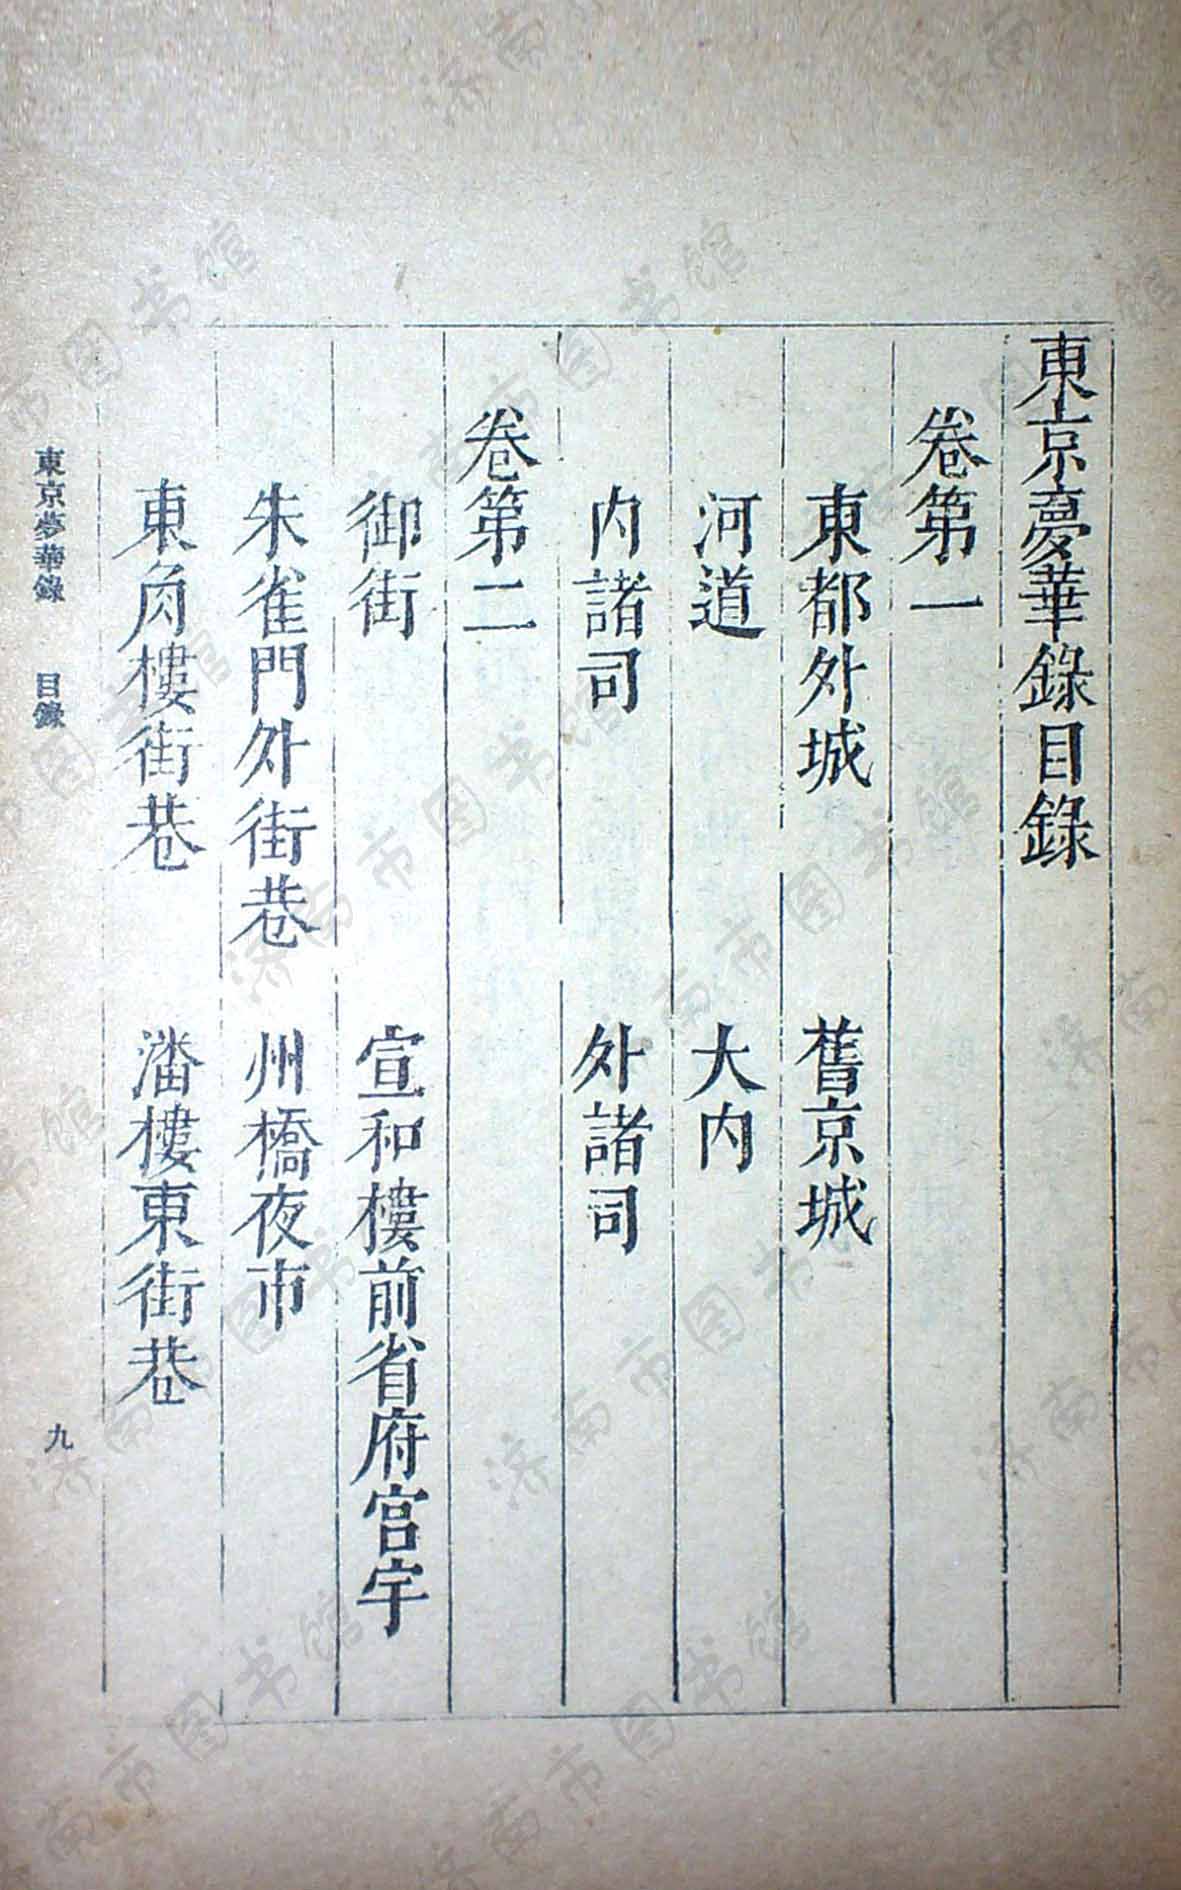 東京夢華錄目錄
卷第一
東都外城　舊京城
河道　大内
内諸司　外諸司
卷第二
御街　宣和樓前省府宫宇
朱雀門外街巷　州橋夜市
東角樓街巷　潘樓東街巷
東京夢華錄　目錄　九
济南市图书馆